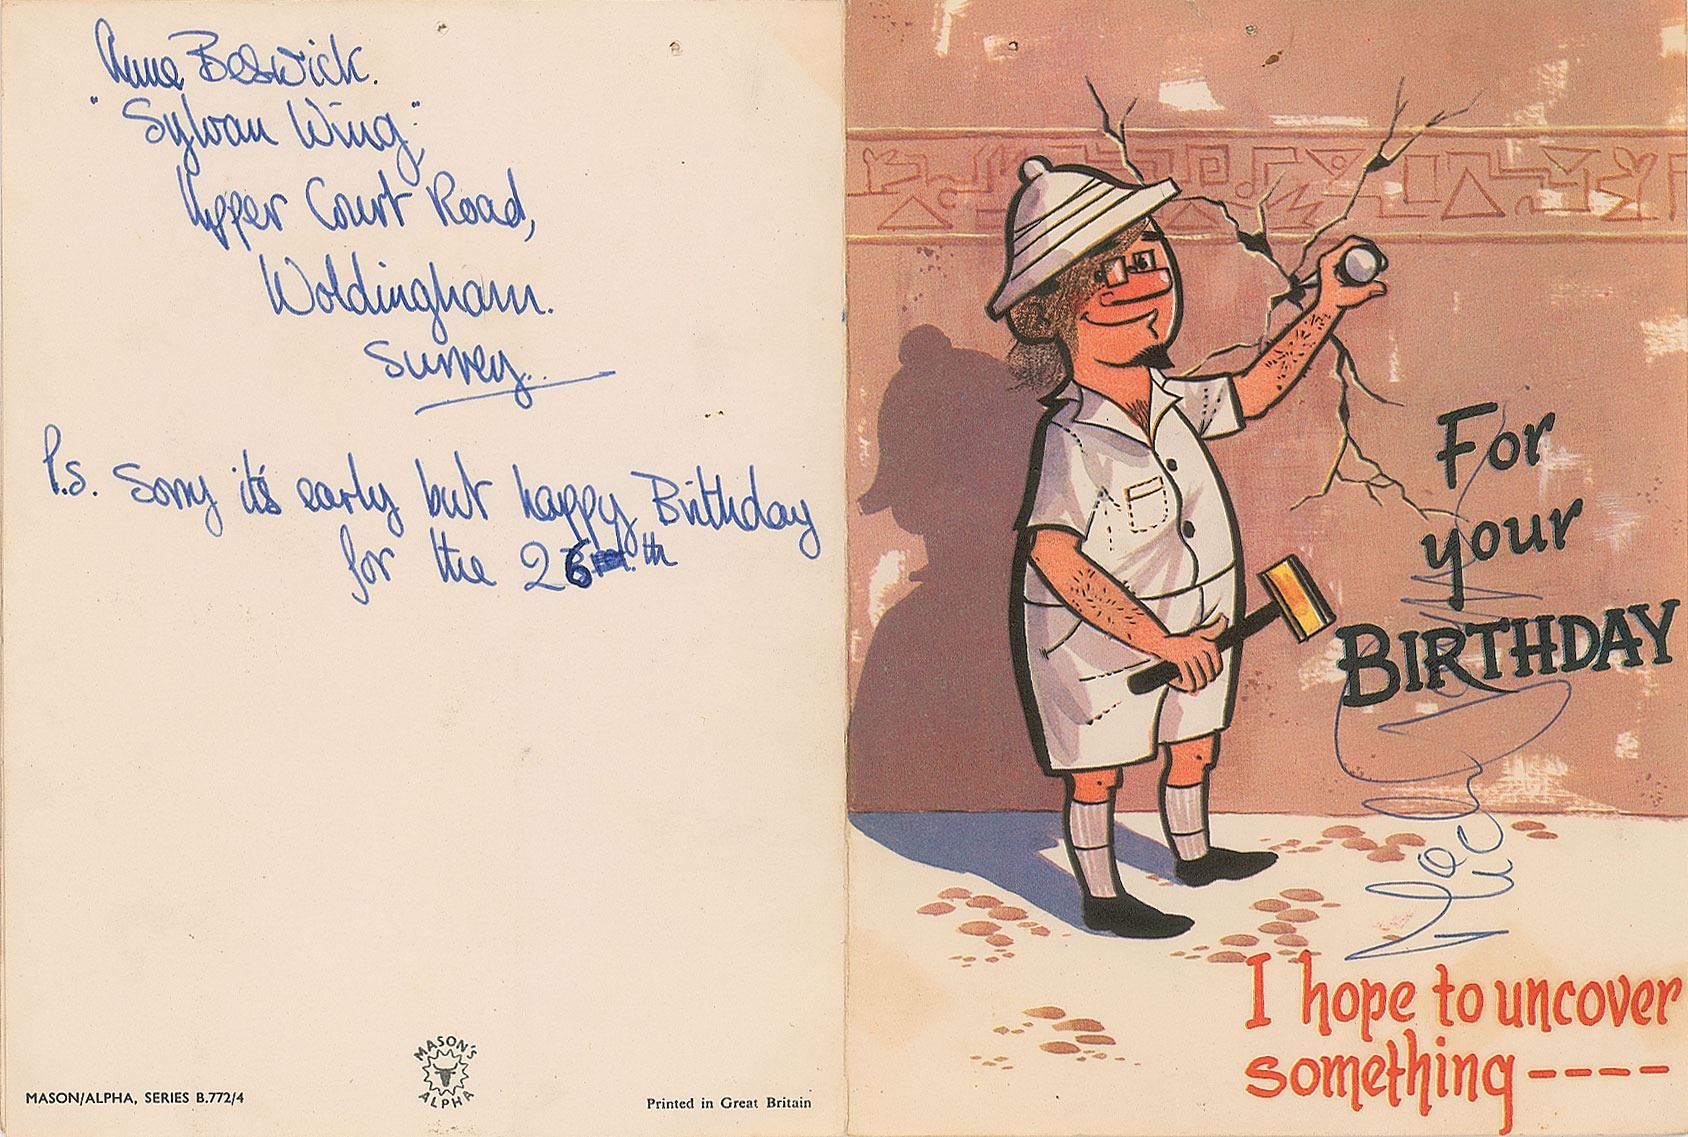 Anne Beswick.
"Sylvan Wing",
Upper Court Road,
Woldingham.
Surrey.
P.S. Sorry it's early but happy Birthday
for the 26 th
MASON'S
ALPHA
MASON/ALPHA, SERIES B.772/4
Printed in Great Britain
For
your
BIRTHDAY
I hope to uncover
something----